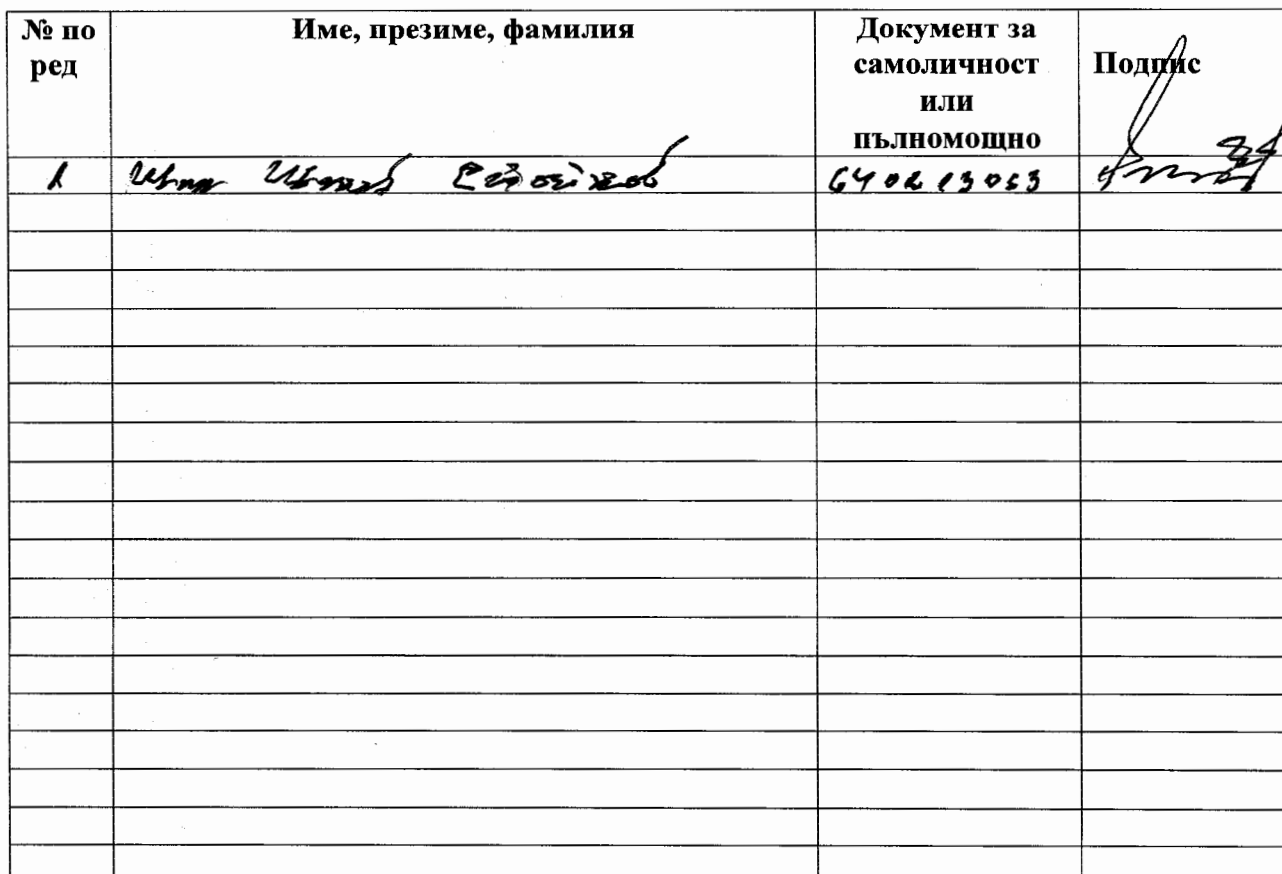 № по ред
Име, презиме, фамилия
Документ за самоличност или пълномощно
Подпис
1
640213053